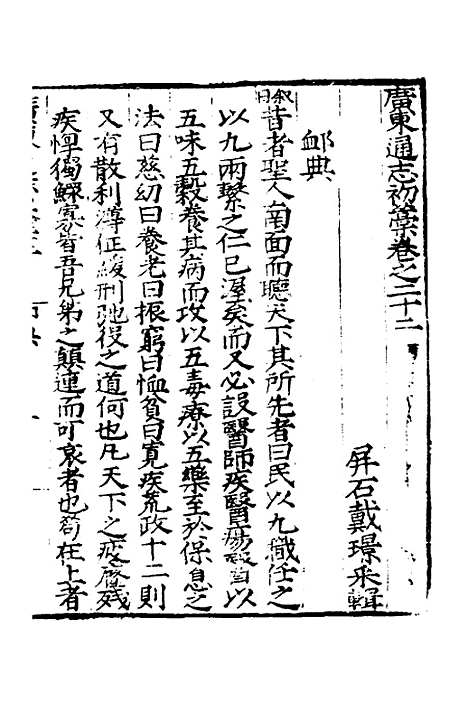 廣東通志初藁卷之二十二
屏石戴璟采輯
卹典
叙曰昔者聖人南面而聽天下其所先者曰民以九職任之
以九兩繫之仁已渥矣而又必設醫師疾醫瘍醫以
五味五穀養其病而攻以五毒療以五藥至於保息之
法曰慈幼曰養老曰振窮曰恤貧曰寬疾荒政十二則
又有散利薄征緩刑弛役之道何也凡天下之疲癃殘
疾惸獨鰥寡皆吾兄弟之顛連而可哀者也苟在上者